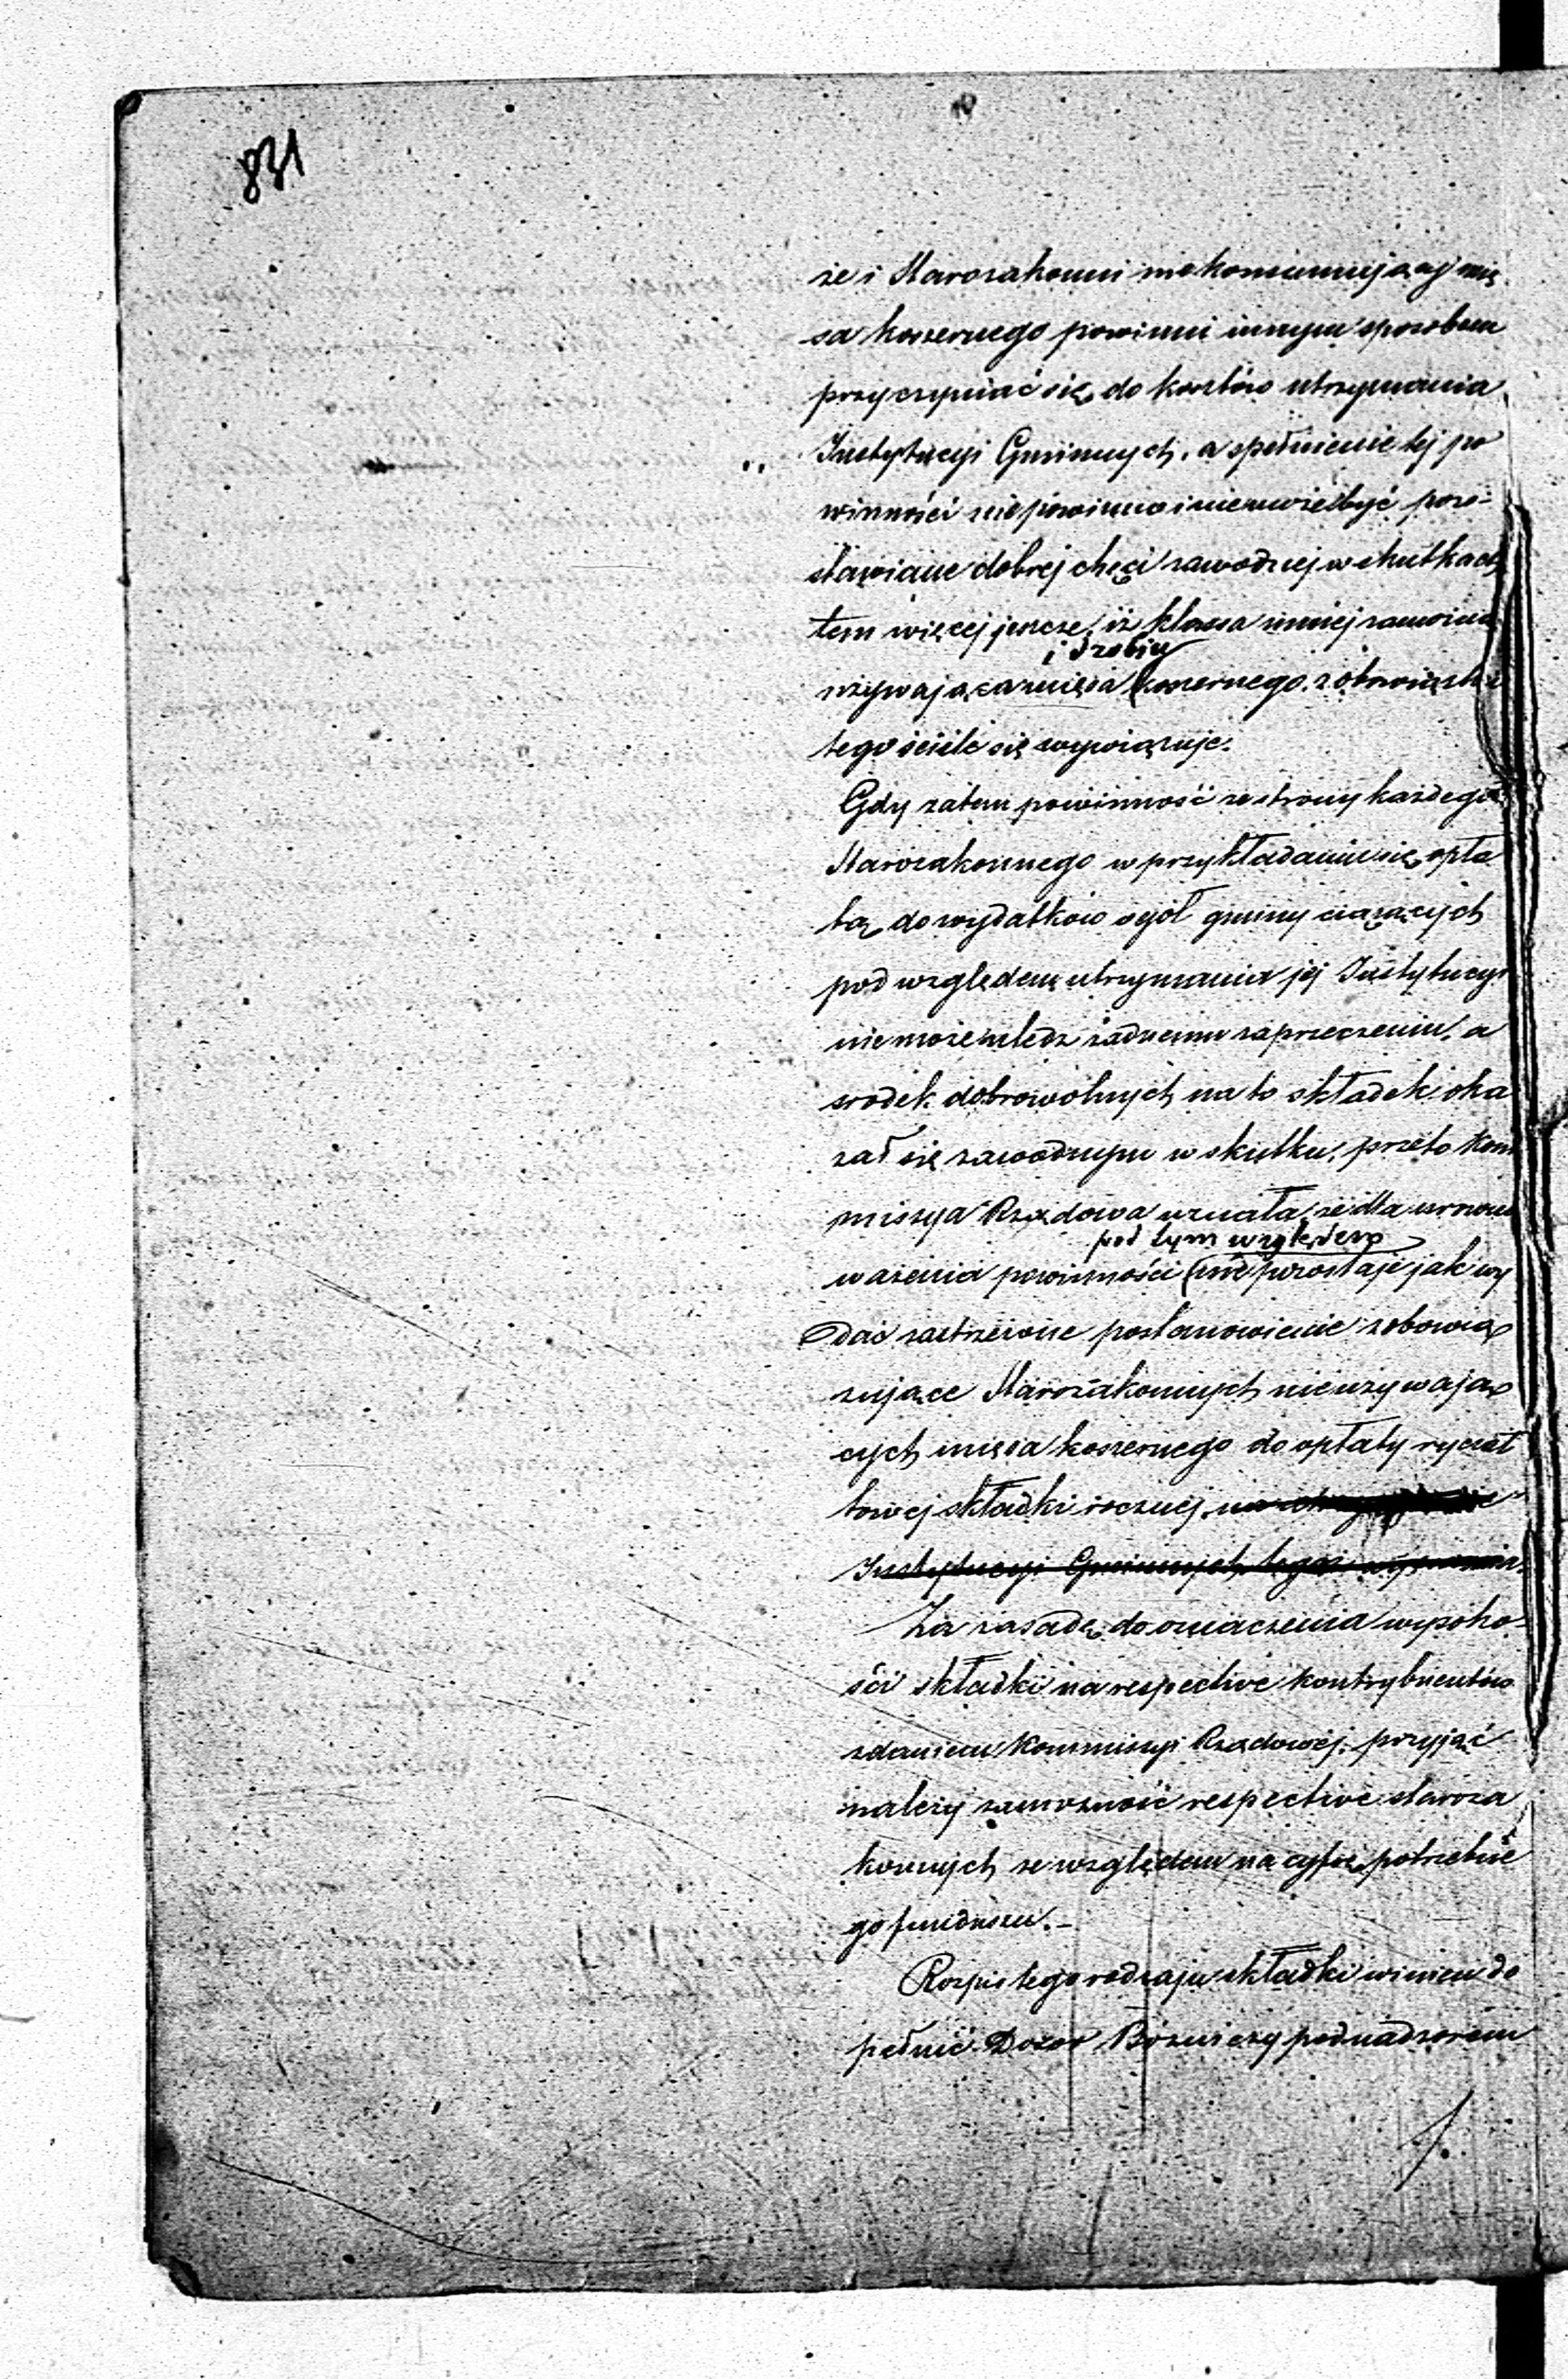 831
że i Starozakonni niekonsumujący mię
sa koszernego powinni innym sposobem
przyczyniać się do kosztów utrzymania
Instytucyi Gminnych, a spełnienie tej po
winności niepowinno i niemoże być pozo-
stawiane dobrej chęci zawodnej w skutkach
tem więcej jeszcze, iż klassa mniej zamożna
i drobiu
używająca mięsa koszernego, z obowiązku
tego ściśle się wywiązuje.
Gdy zatem powinność ze strony każdego
Starozakonnego w przykładaniu się opła
tą do wydatków ogół gminy ciążących
pod względem utrzymania jej Instytucyi
niemoże uledz żadnemu zaprzeczeniu, a
srodek dobrowolnych na to składek oka
zał się zawodnym w skutku, przeto Kom
missya Rządowa uznała, że dla zrówno
pod tym względem
ważenia powinności nie pozostaje jak wy
dać zastrzeżone postanowienie zobowią
zujące Starozakonnych nieużywają
cych mięsa koszernego do opłaty ryczał
towej składki rocznej, na
Instytucyi Gminnych tegoż
Za zasadę do oznaczenia wysoko-
ści składki na respective kontrybuentów
zdaniem Kommissyi Rządowej, przyjąć
należy zamożność respective staroza
konnych ze względem na cyfrę potrzebne
go funduszu. -
Rozpis tego rodzaju składki winien do
pełnić Dozor Bóżniczy pod nadzorem